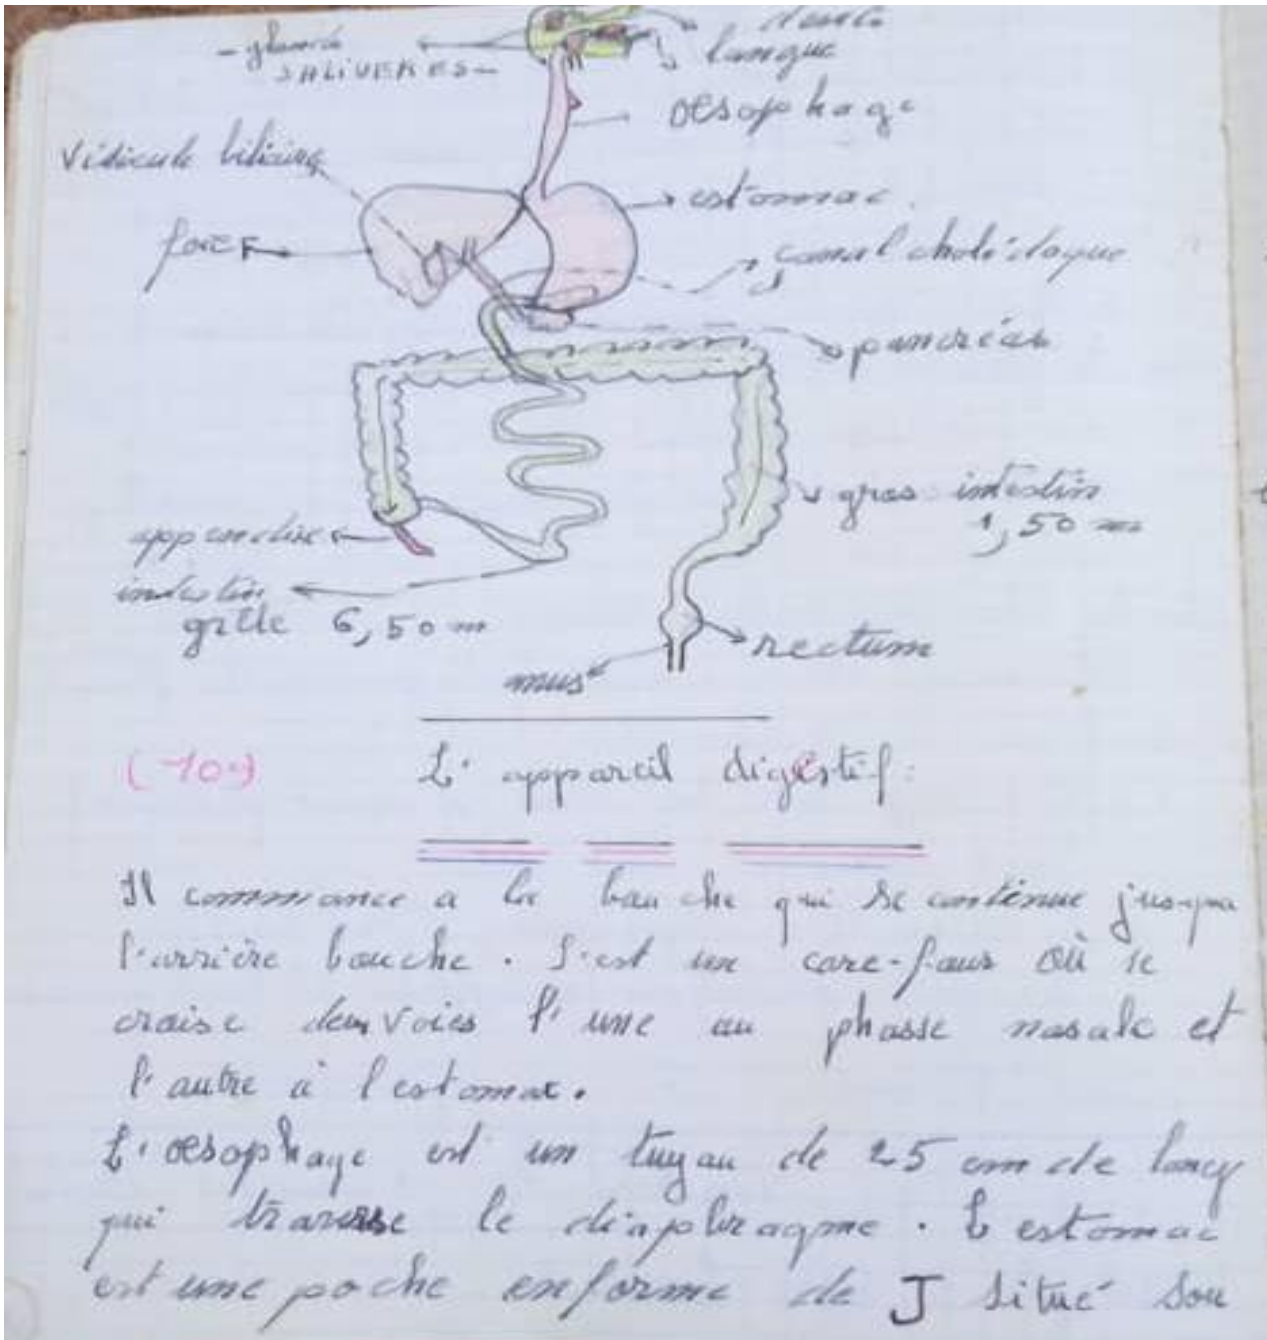 dents
- glande
SALIVERES -
langue
oesophage
Vésicule biliaire
estomac
foie
canal cholédoque
pancréas
gros intestin
1,50 m
appendice
intestin
grêle 6,50 m
rectum
anus
(10°)
L'appareil digéstif:
Il commance a la bauche qui se continue jusqua
l'arrière bouche. s'est un care-faur où se
croise deux voies l'une au phasse nasale et
l'autre à l'estomac.
L'oesophage est un tuyau de 25 cm de long
qui traverse le diaphragme. L estomac
est une poche enforme de J situé sou